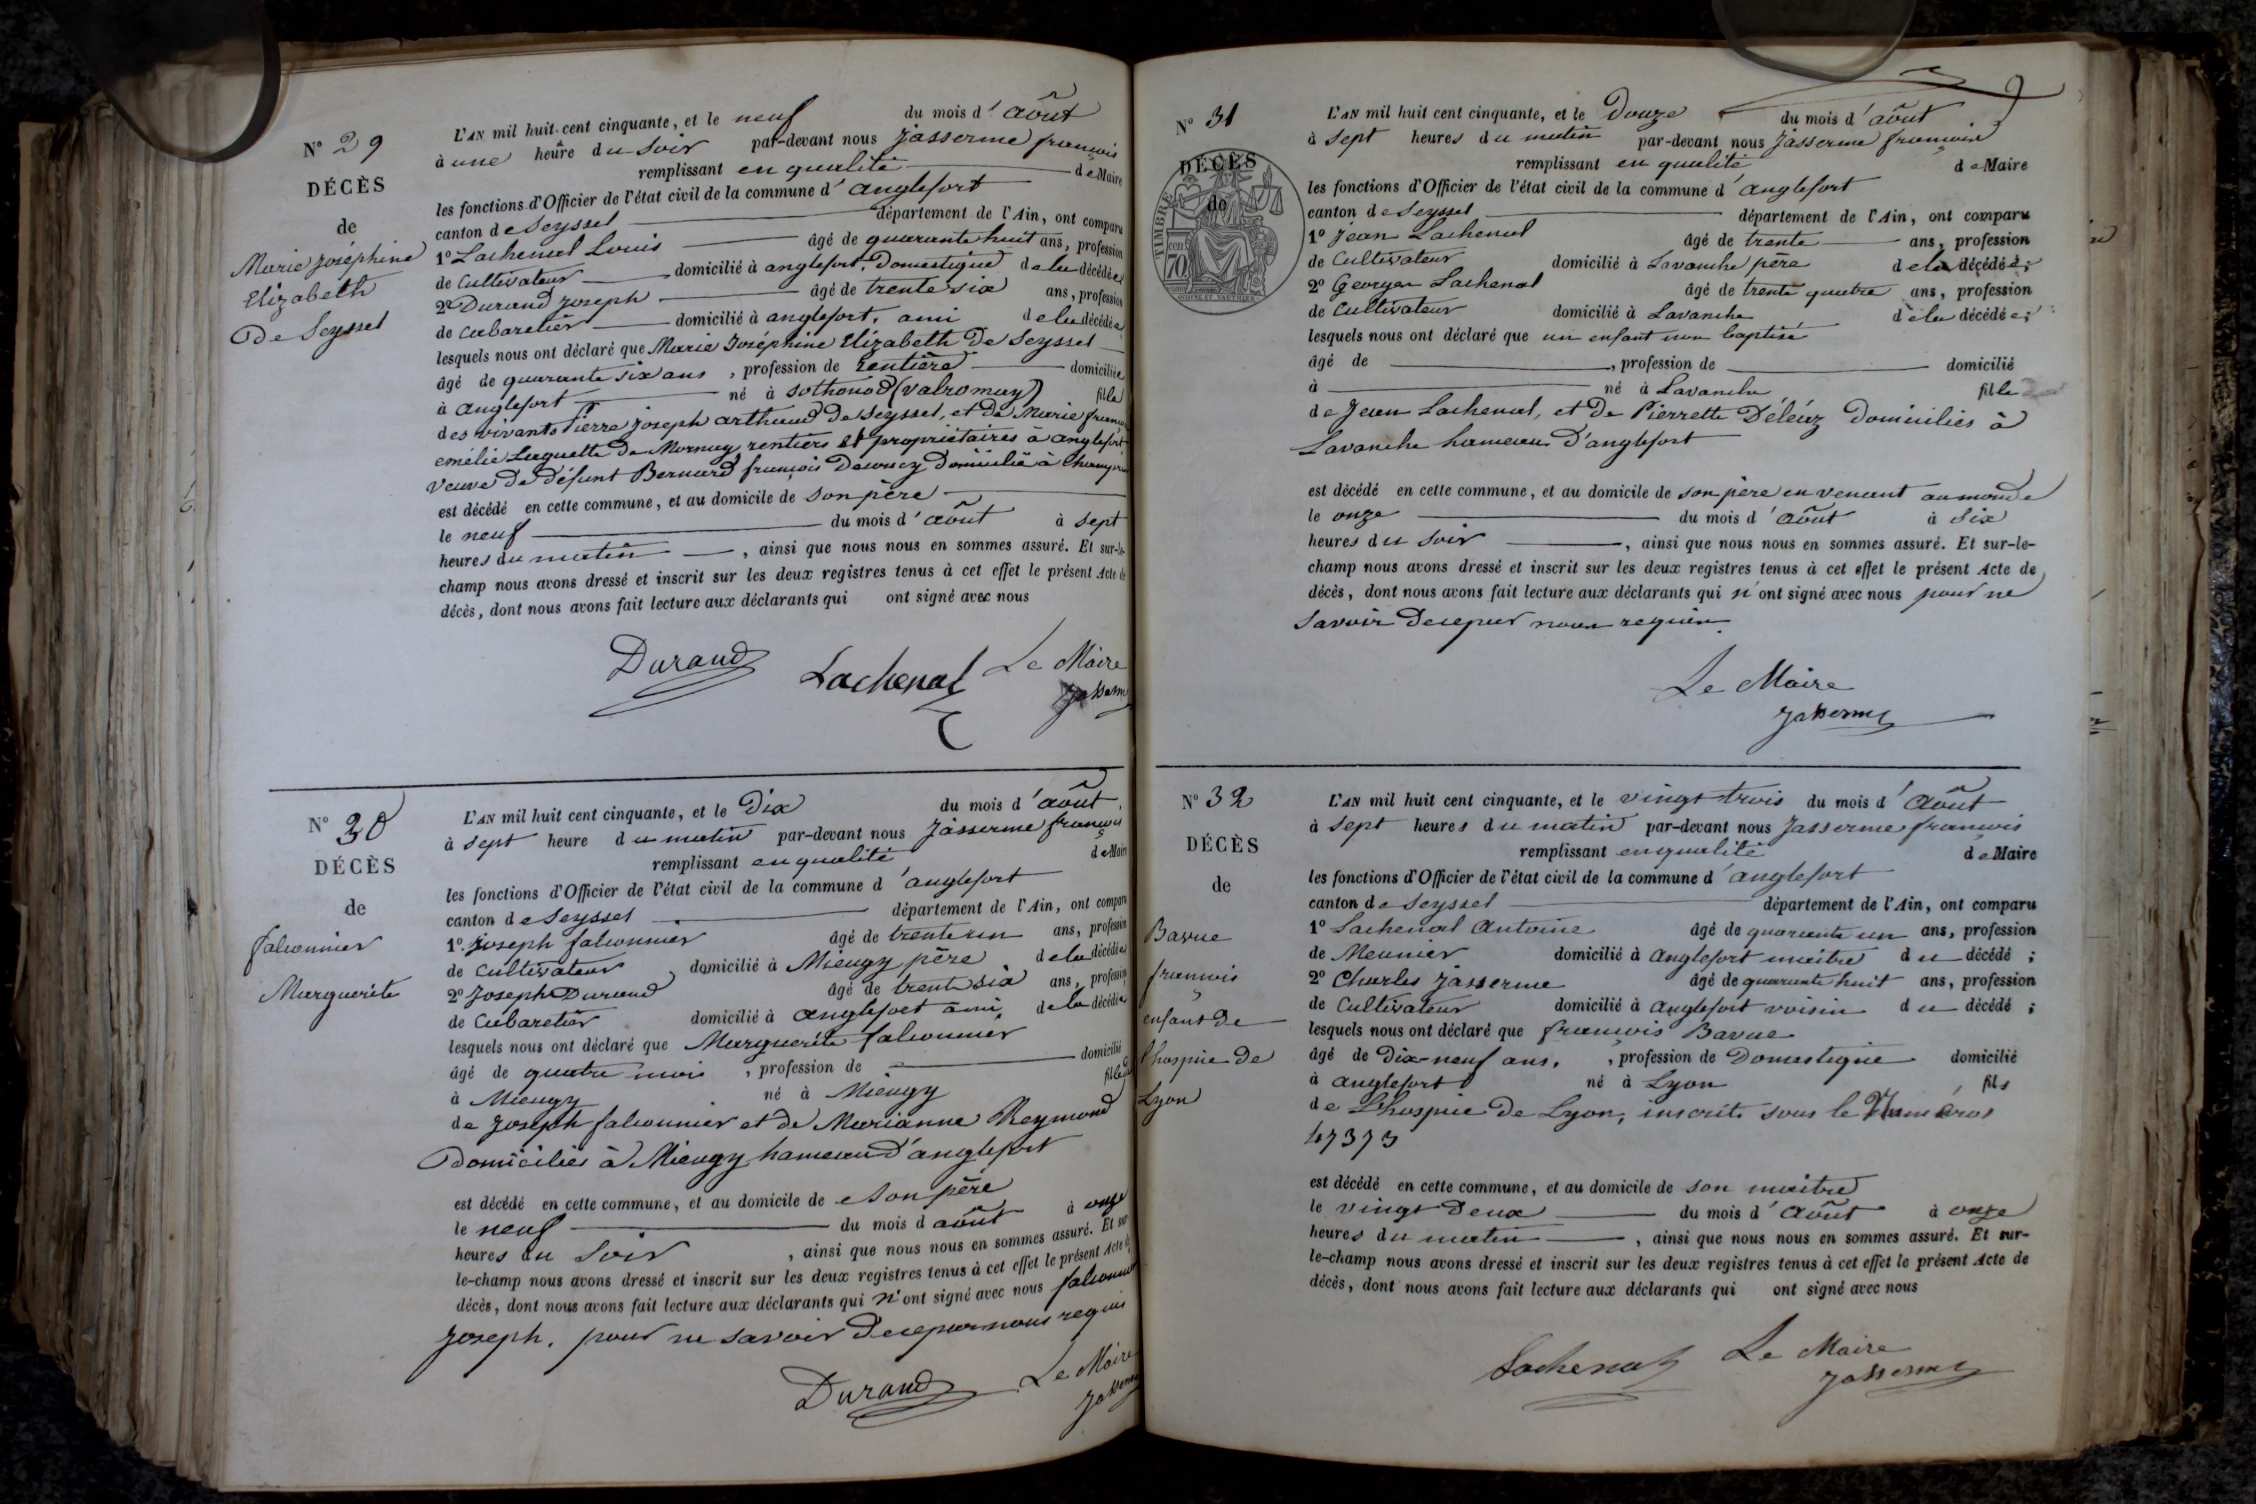 N° 29
DÉCÈS
de
Marie Joséphine
Elizabeth
De Seyssel
L'AN mil huit cent cinquante, et le neuf du mois d'août
à une heure du soir par-devant nous Jasserme françois
remplissant en qualité de Maire
les fonctions d'Officier de l'état civil de la commune d'anglefort
canton de Seyssel département de l'Ain, ont comparu
1° Lachenal Louis âgé de quarante huit ans, profession
de Cultivateur domicilié à anglefort, Domestique de la décédée
2° Durand joseph âgé de trente six ans, profession
de Cabaretier domicilié à anglefort, ami de la décédée
lesquels nous ont déclaré que Marie Joséphine Elizabeth De Seyssel
âgé de quarante six ans, profession de Rentière domiciliée
à anglefort né à Sothonod (valromay) fille
des vivants Pierre joseph arthaud De Seyssel, et de Marie
emélie Luguette De Mornay, rentiers et propriétaires à anglefort
veuve de défunt Bernard françois domicilié à
est décédé en cette commune, et au domicile de son père
le neuf du mois d'août à sept
heures du matin, ainsi que nous nous en sommes assuré. Et sur-le-
champ nous avons dressé et inscrit sur les deux registres tenus à cet effet le présent Acte de
décès, dont nous avons fait lecture aux déclarants qui ont signé avec nous
Durand Lachenal Le Maire
Jasserme
N° 30
DÉCÈS
de
falconnier
Marguerite
L'AN mil huit cent cinquante, et le Dix du mois d'août
à sept heure du matin par-devant nous Jasserme françois
remplissant en qualité de Maire
les fonctions d'Officier de l'état civil de la commune d'anglefort
canton de Seyssel département de l'Ain, ont comparu
1° Joseph falconnier âgé de trente un ans, profession
de Cultivateur domicilié à Mieugy père de la décédée
2° Joseph Durand âgé de trente six ans, profession
de Cabaretier domicilié à anglefort ami, de la décédée
lesquels nous ont déclaré que Marguerite falconnier
âgé de quatre mois, profession de domicilié
à Mieugy né à Mieugy fille
de Joseph falconnier et de Marianne Reymond
Domiciliés à Mieugy hameau d'anglefort
est décédé en cette commune, et au domicile de son père
le neuf du mois d août à onze
heures du Soir, ainsi que nous nous en sommes assuré. Et sur
le-champ nous avons dressé et inscrit sur les deux registres tenus à cet effet le présent Acte de
décès, dont nous avons fait lecture aux déclarants qui n'ont signé avec nous falconnier
Joseph. pour ne savoir de ce par nous requis
Durand Le Maire
Jasserme
N° 31
DÉCÈS
de
TIMBRE
70
L'AN mil huit cent cinquante, et le Douze du mois d'août
à sept heures du matin par-devant nous Jasserme françois
remplissant en qualité de Maire
les fonctions d'Officier de l'état civil de la commune d'anglefort
canton de Seyssel département de l'Ain, ont comparu
1° Jean Lachenal âgé de trente ans, profession
de Cultivateur domicilié à Lavanche père de la décédée;
2° Georges Lachenal âgé de trente quatre ans, profession
de Cultivateur domicilié à Lavanche de la décédée;
lesquels nous ont déclaré que un enfant non baptisé
âgé de, profession de domicilié
à né à Lavanche fille
de Jean Lachenal, et De Pierrette Déléaz Domiciliés à
Lavanche hameau D'anglefort
est décédé en cette commune, et au domicile de son père en venant au monde
le onze du mois d'août à Six
heures du Soir, ainsi que nous nous en sommes assuré. Et sur-le-
champ nous avons dressé et inscrit sur les deux registres tenus à cet effet le présent Acte de
décès, dont nous avons fait lecture aux déclarants qui n'ont signé avec nous pour ne
Savoir De ce par nous requis.
Le Maire
Jasserme
N° 32
DÉCÈS
de
Bavue
françois
enfant de
l'hospice de
Lyon
L'AN mil huit cent cinquante, et le vingt trois du mois d'Août
à sept heures du matin par-devant nous Jasserme françois
remplissant en qualité de Maire
les fonctions d'Officier de l'état civil de la commune d'anglefort
canton de Seyssel département de l'Ain, ont comparu
1° Lachenal Antoine âgé de quarante un ans, profession
de Meunier domicilié à Anglefort maître du décédé;
2° Charles Jasserme âgé de quarante huit ans, profession
de Cultivateur domicilié à Anglefort voisin du décédé;
lesquels nous ont déclaré que françois Bavue
âgé de Dix-neuf ans., profession de Domestique domicilié
à anglefort né à Lyon fils
de L'hospice De Lyon, inscrit sous le Numéros
47373
est décédé en cette commune, et au domicile de son maître
le vingt Deux du mois d'Août à onze
heures du matin, ainsi que nous nous en sommes assuré. Et sur-
le-champ nous avons dressé et inscrit sur les deux registres tenus à cet effet le présent Acte de
décès, dont nous avons fait lecture aux déclarants qui ont signé avec nous
Lachenal Le Maire
Jasserme